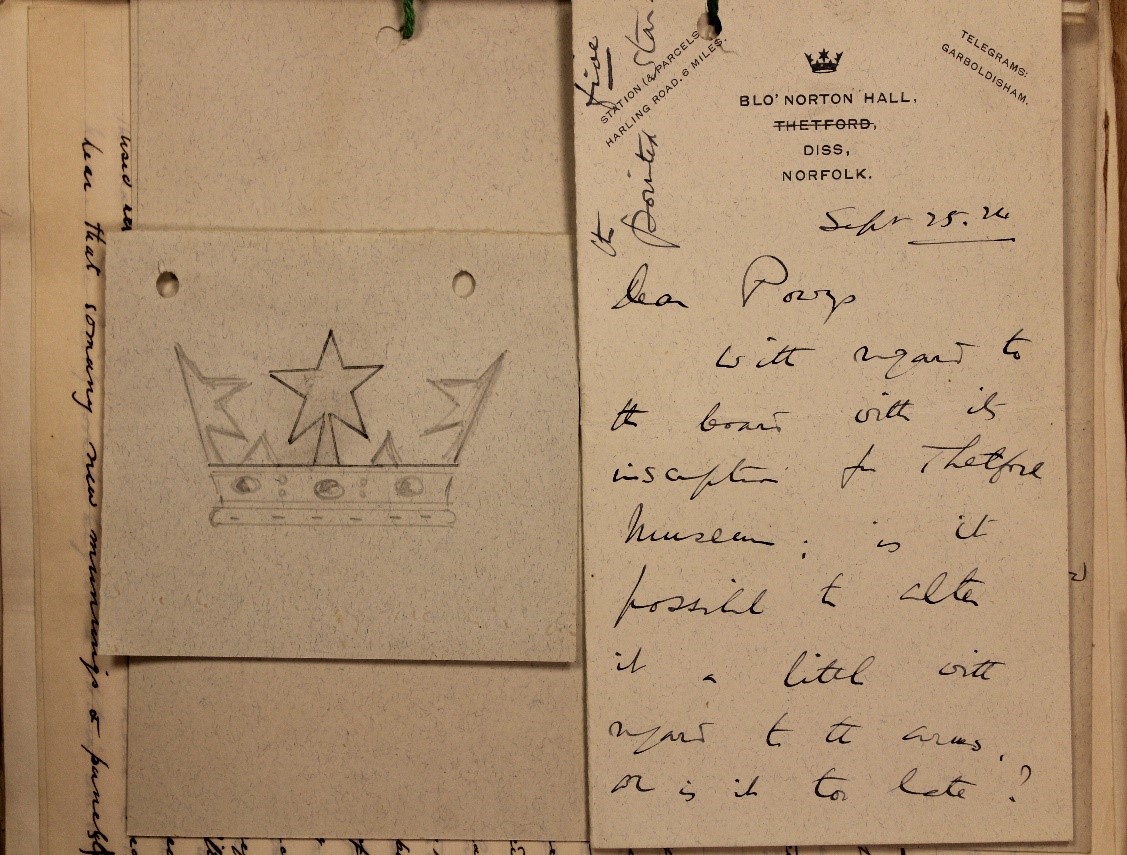 used in
hear that so many new
STATION (& PARCELS)
HARLING ROAD. 6 MILES.
TELEGRAMS:
GARBOLDISHAM.
BLO' NORTON HALL,
THETFORD,
DISS,
NORFOLK.
Sept 25. 24
Dear Powys
With regard to
the board with its
inscription for Thetford
Museum: is it
possible to alter
it a little with
regard to the arms,
or is it too late?
the
pointed star.
five